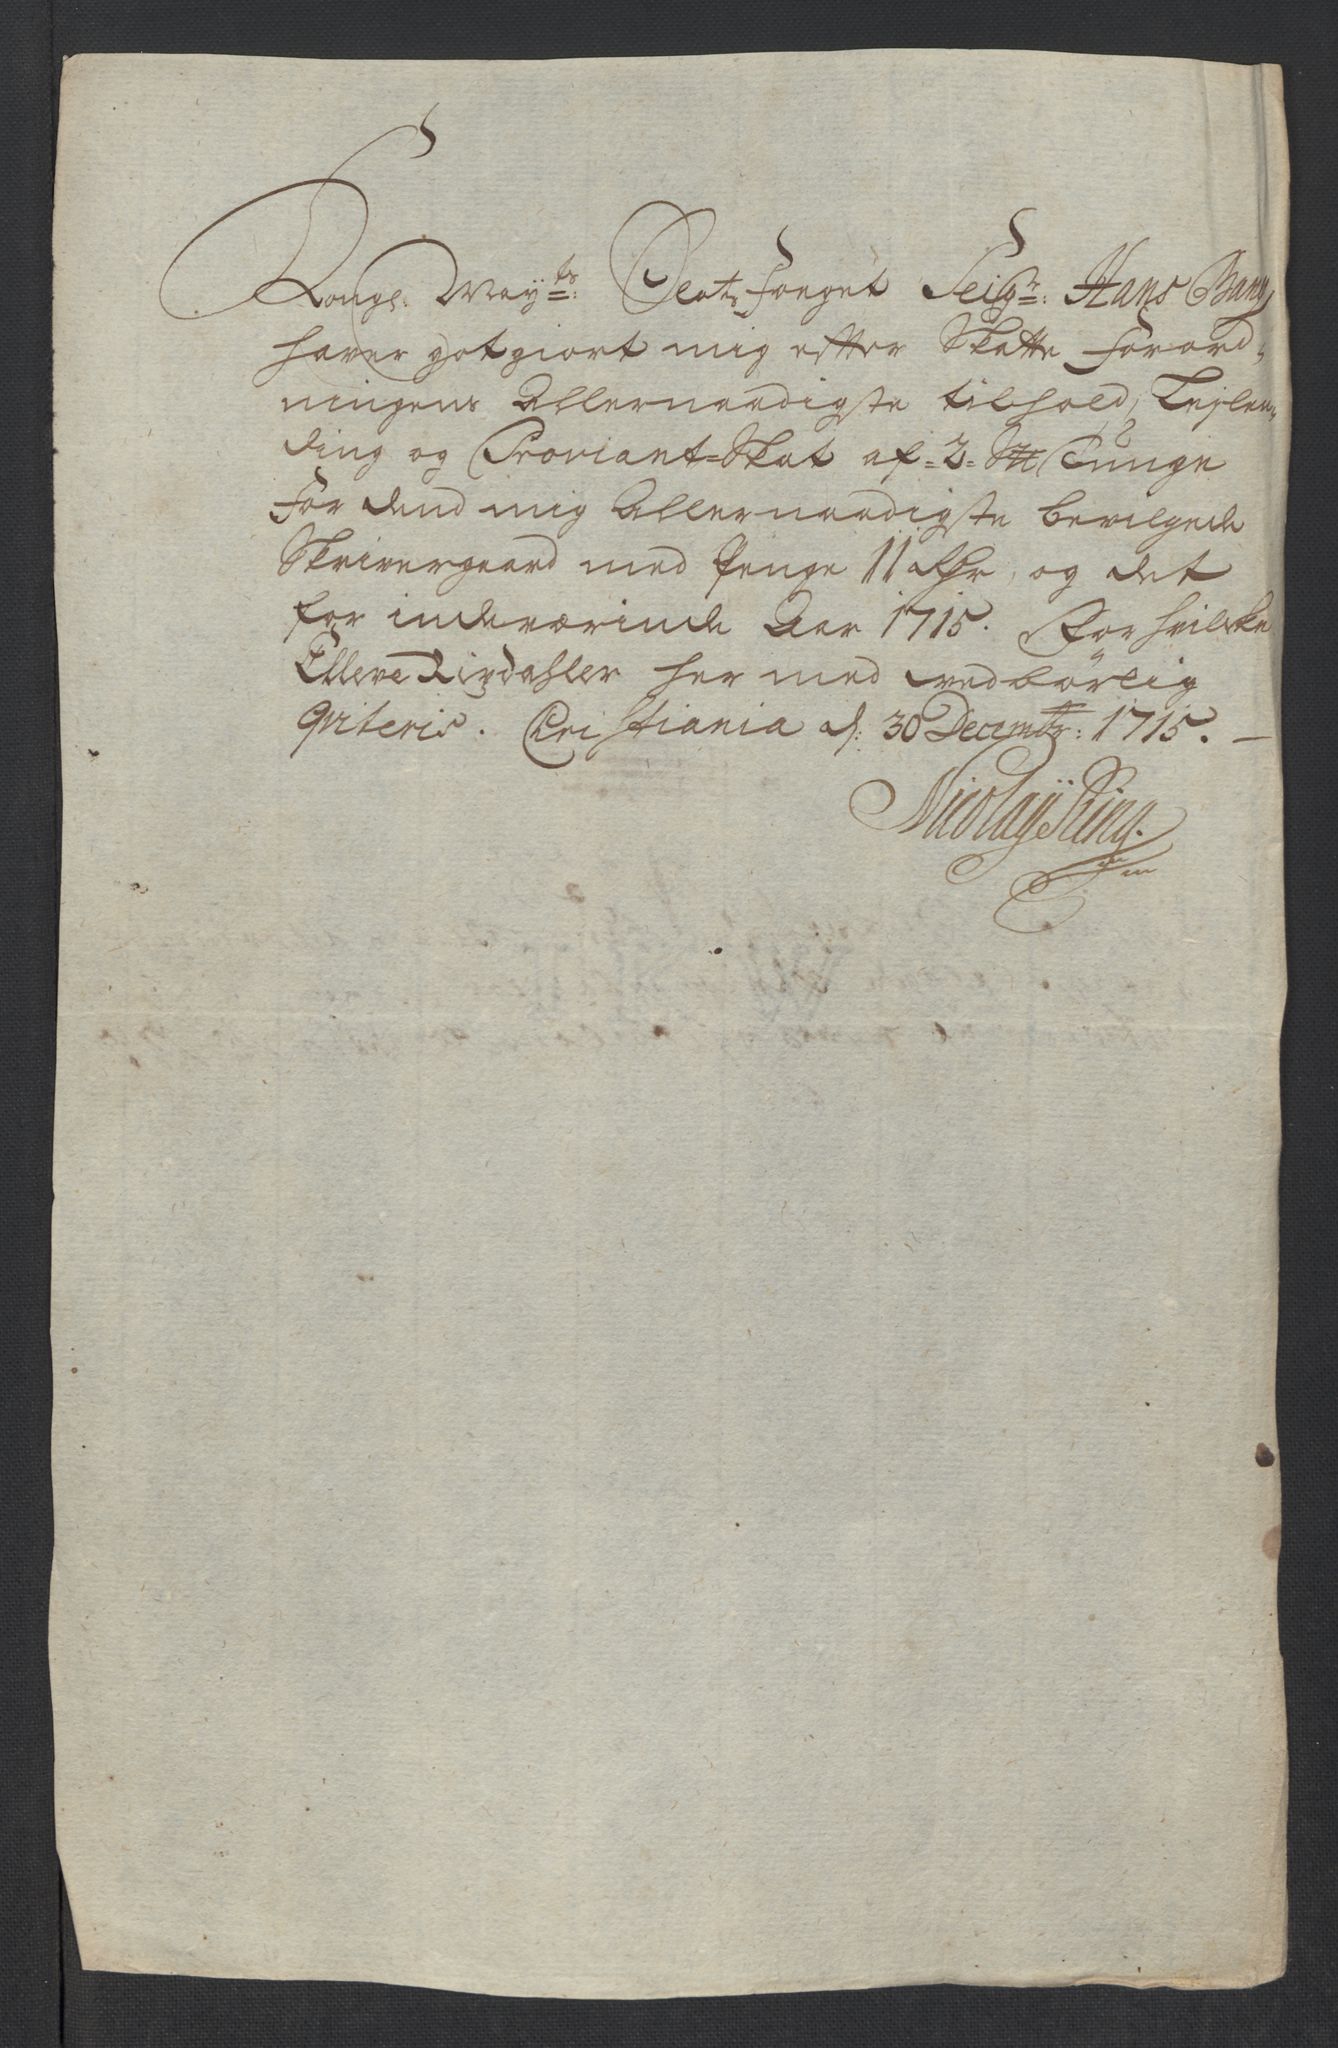 Kongl: May:ts Voets foeget Seig:r Hans Bang
haver gotgiort mig efter Skatte forord-
ningens Allernaadigste tilhold, Lejlen-
ding og Proviant-Skat af 2 Tunge
for dend mig Allernaadigste bevilgede
Skrivergaard med Penge 11 Rdr, og det
for indeværinde Aar 1715. For hvilcke
Elleve Rixdahller her med vedbørlig
qviteris. Christiania d: 30 Decembr: 1715.
Nicolaÿ Ring.